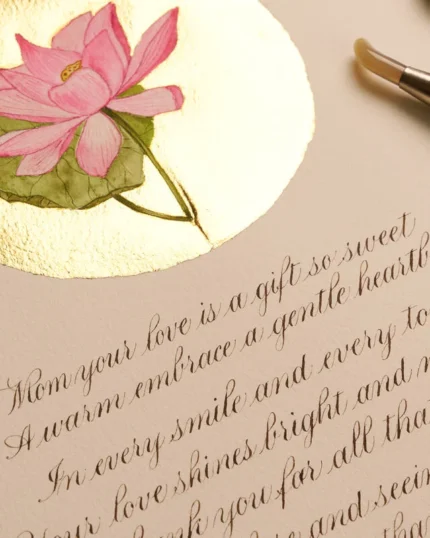 Mom your love is a gift so sweet
A warm embrace a gentle
In every smile and every
Your love shines bright and
you for all
and